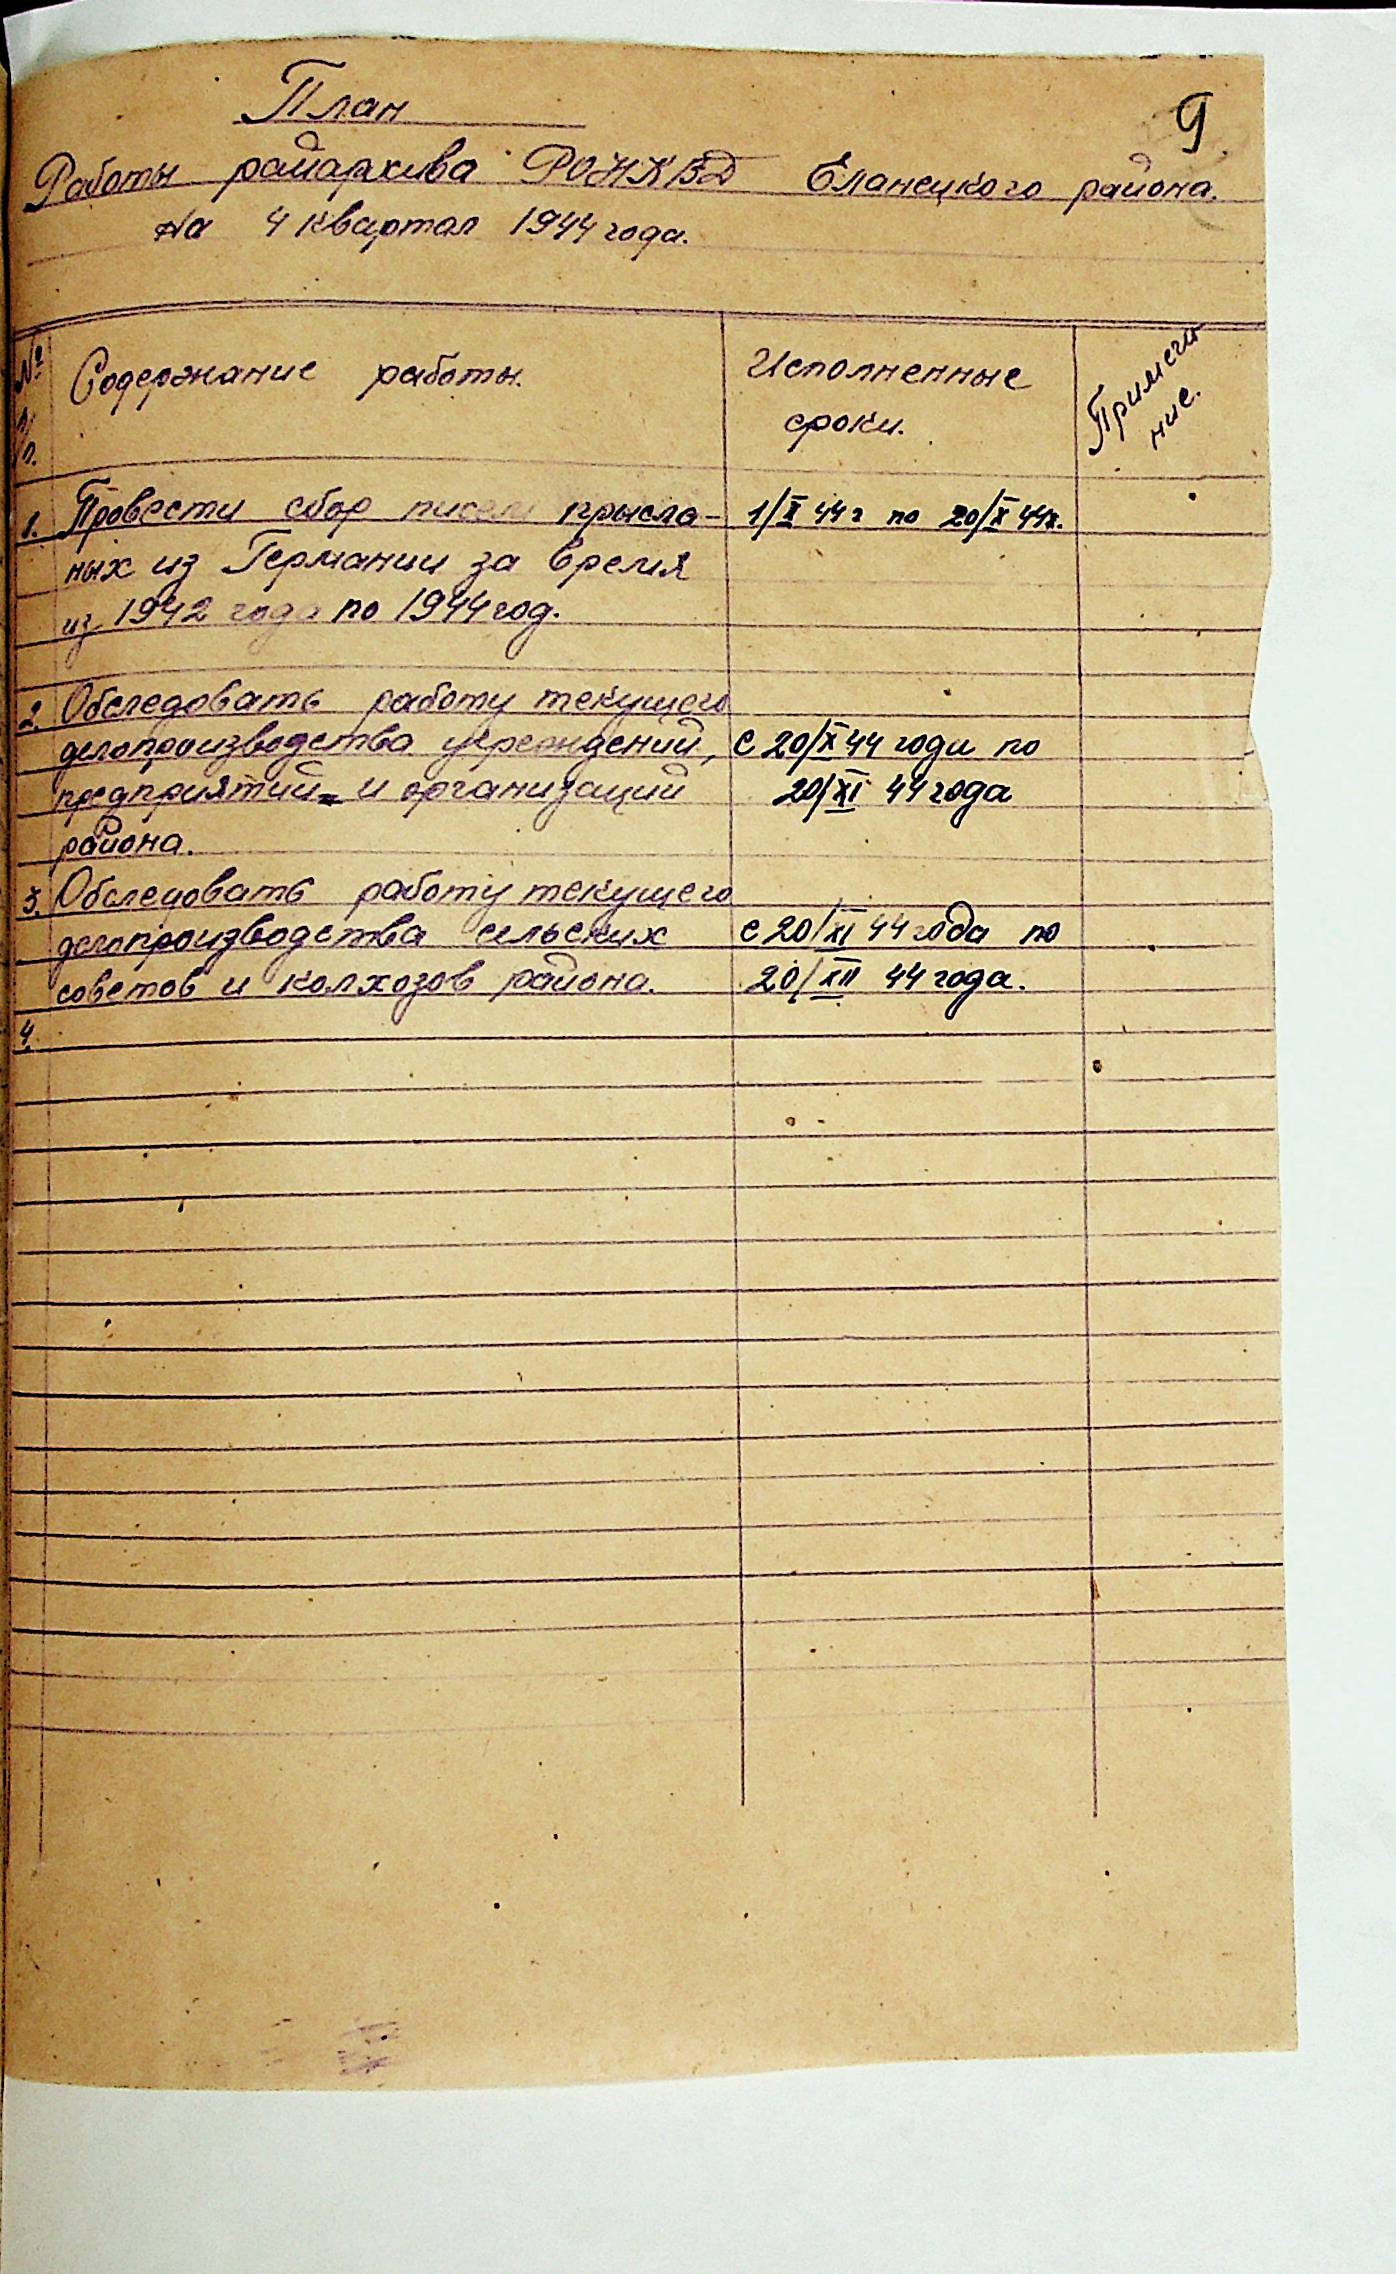 9
План
Работы райархива РОНКВД Еланецкого района.
На 4 квартал 1944 года.
№ п/п. Содержание работы. Исполненные сроки. Примеча ние.
1. Провести сбор писем прысла- 1/X 44 г по 20/X 44г.
ных из Германии за время
из 1942 года по 1944 год.
2. Обследовать работу текущего
делопроизводства учреждений, с 20/X 44 года по
предприятий и организаций 20/XI 44 года
района.
3. Обследовать работу текущего
делопроизводства сельских с 20/XI 44 года по
советов и колхозов района. 20/XII 44 года.
4.